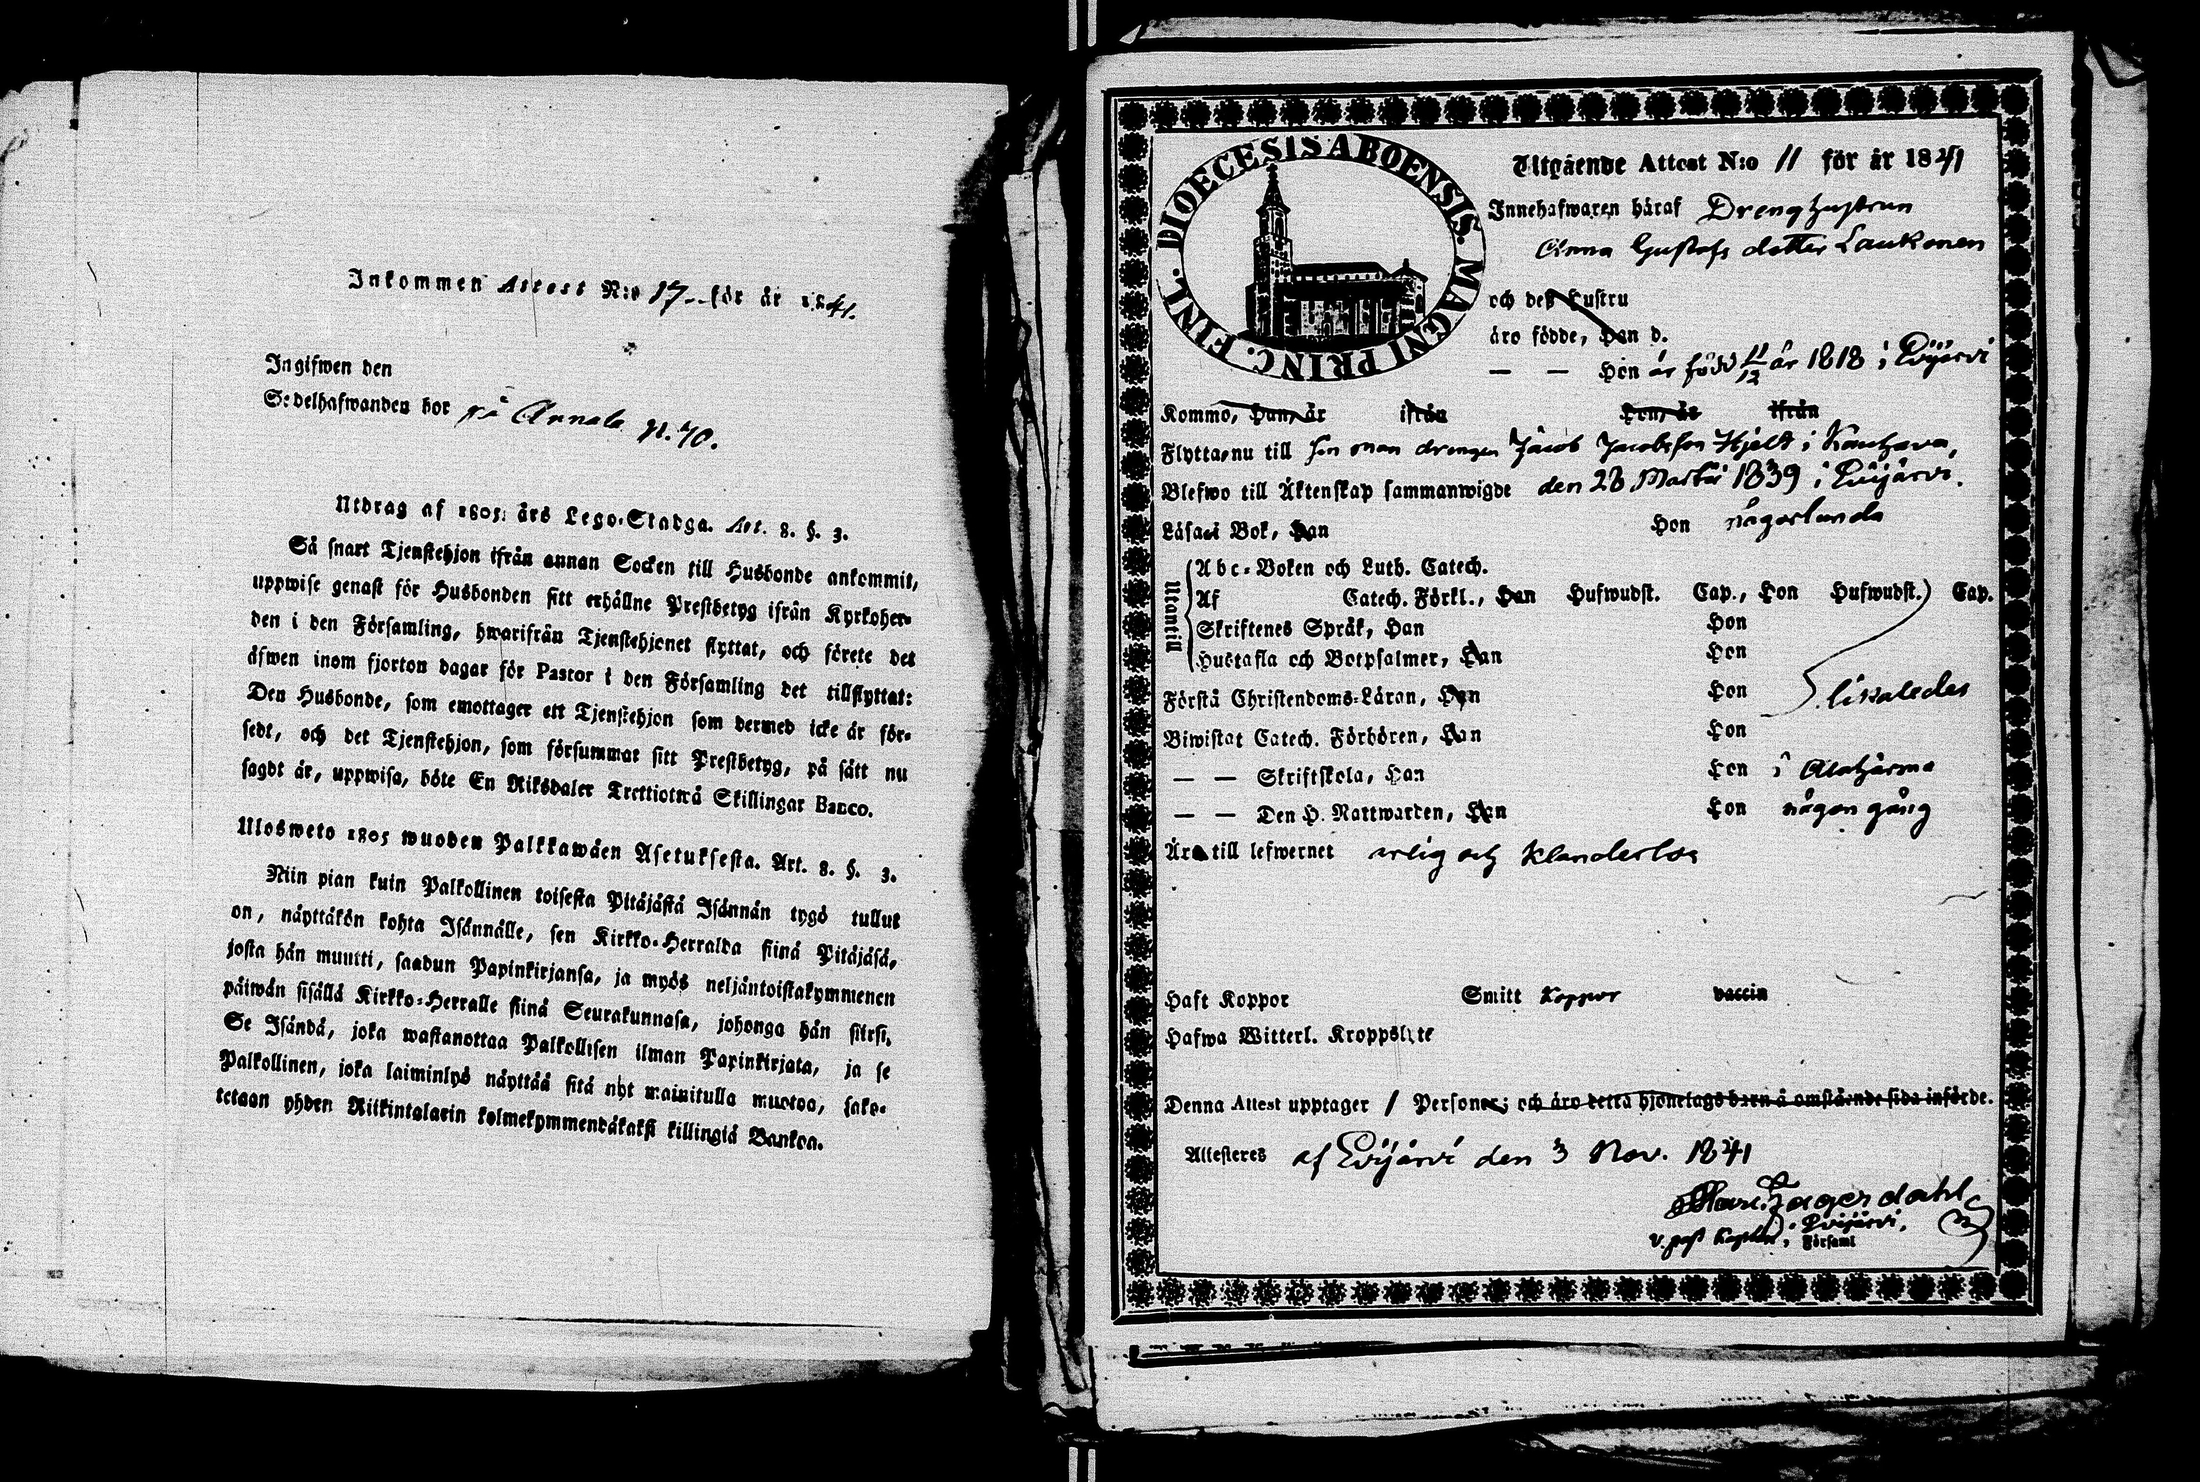 Inkommen Attest N:o 17 för år 1841.
Ingifwen den
Sedelhafwanden bor på Annala N. 70.
Utdrag af 1805: års Lego-Stadga. Art. 8. §. 3.
Så snart Tjenstehjon ifrån annan Socken till Husbonde ankommit,
uppwise genast för Husbonden sitt erhållne Prestbetyg ifrån Kyrkoher-
den i den Församling, hwarifrån Tjenstehjonet flyttat, och förete det
äfwen inom fjorton dagar för Pastor i den Församling det tillflyttat:
Den Husbonde, som emottager ett Tjenstehjon som dermed icke är för-
sedt, och det Tjenstehjon, som försummat sitt Prestbetyg, på sätt nu
sagdt är, uppwisa, böte En Riksdaler Trettiotwå Skillingar Banco.
Ulosweto 1805 wuoden Palkkawäen Asetuksesta. Art. 8. §. 3.
Niin pian kuin Palkollinen toisesta Pitäjästä Isännän tygö tullut
on, näyttäkön kohta Isännälle, sen Kirkko-Herralda siinä Pitäjäsä,
josta hän muutti, saadun Papinkirjansa, ja myös neljäntoistakymmenen
päiwän sisällä Kirkko-Herralle siinä Seurakunnasa, johonga hän siirsi.
Se Isändä, joka wastanottaa Palkollisen ilman Papinkirjata, ja se
Palkollinen, joka laiminlyö näyttää sitä nyt mainitulla muotoa, sako-
tetaan yhden Riikintalarin kolmekymmendäkaksi killingiä Bankoa.
DIOECESIS ABOENSIS. MAGNI PRINC. FINL.
Utgående Attest N:o 11 för år 1841
Innehafwaren häraf Dreng hustrun
Anna Gustafs dotter Laukonen
och deß Hustru
äro födde, Han d.
— — Hon är född 11/12 år 1818 i Evijärvi
Kommo, Han, är ifrån Hon, är ifrån
Flytta nu till sin man drengen Jacob Jacobsson Hjelt i Kauhava,
Blefwo till Äktenskap sammanwigde den 28 Martii 1839 i Evijärvi.
Läsa i Bok, Han Hon någorlunda
Utantill
Abc-Boken och Luth. Catech.
Af Catech. Förkl., Han Hufwudst. Cap., Hon Hufwudst. Cap.
Skriftenes Språk, Han Hon
Hustafla och Botpsalmer, Han Hon
Förstå Christendoms-Läran, Han Hon likaledes
Biwistat Catech. Förhören, Han Hon
— — Skriftskola, Han Hon i Alahärmä
— — Den H. Nattwarden, Han Hon någon gång
Äro till lefwernet ärlig och klanderlös
Haft Koppor Smitt Koppor vaccin
Hafwa Witterl. Kroppslyte
Denna Attest upptager 1 Personer; och äro detta hjonelags barn å omstående sida införde.
Attesteres af Evijärvi den 3 Nov. 1841
Lagerdahl
v. past i Evijärvi,
Kapellan, Församl